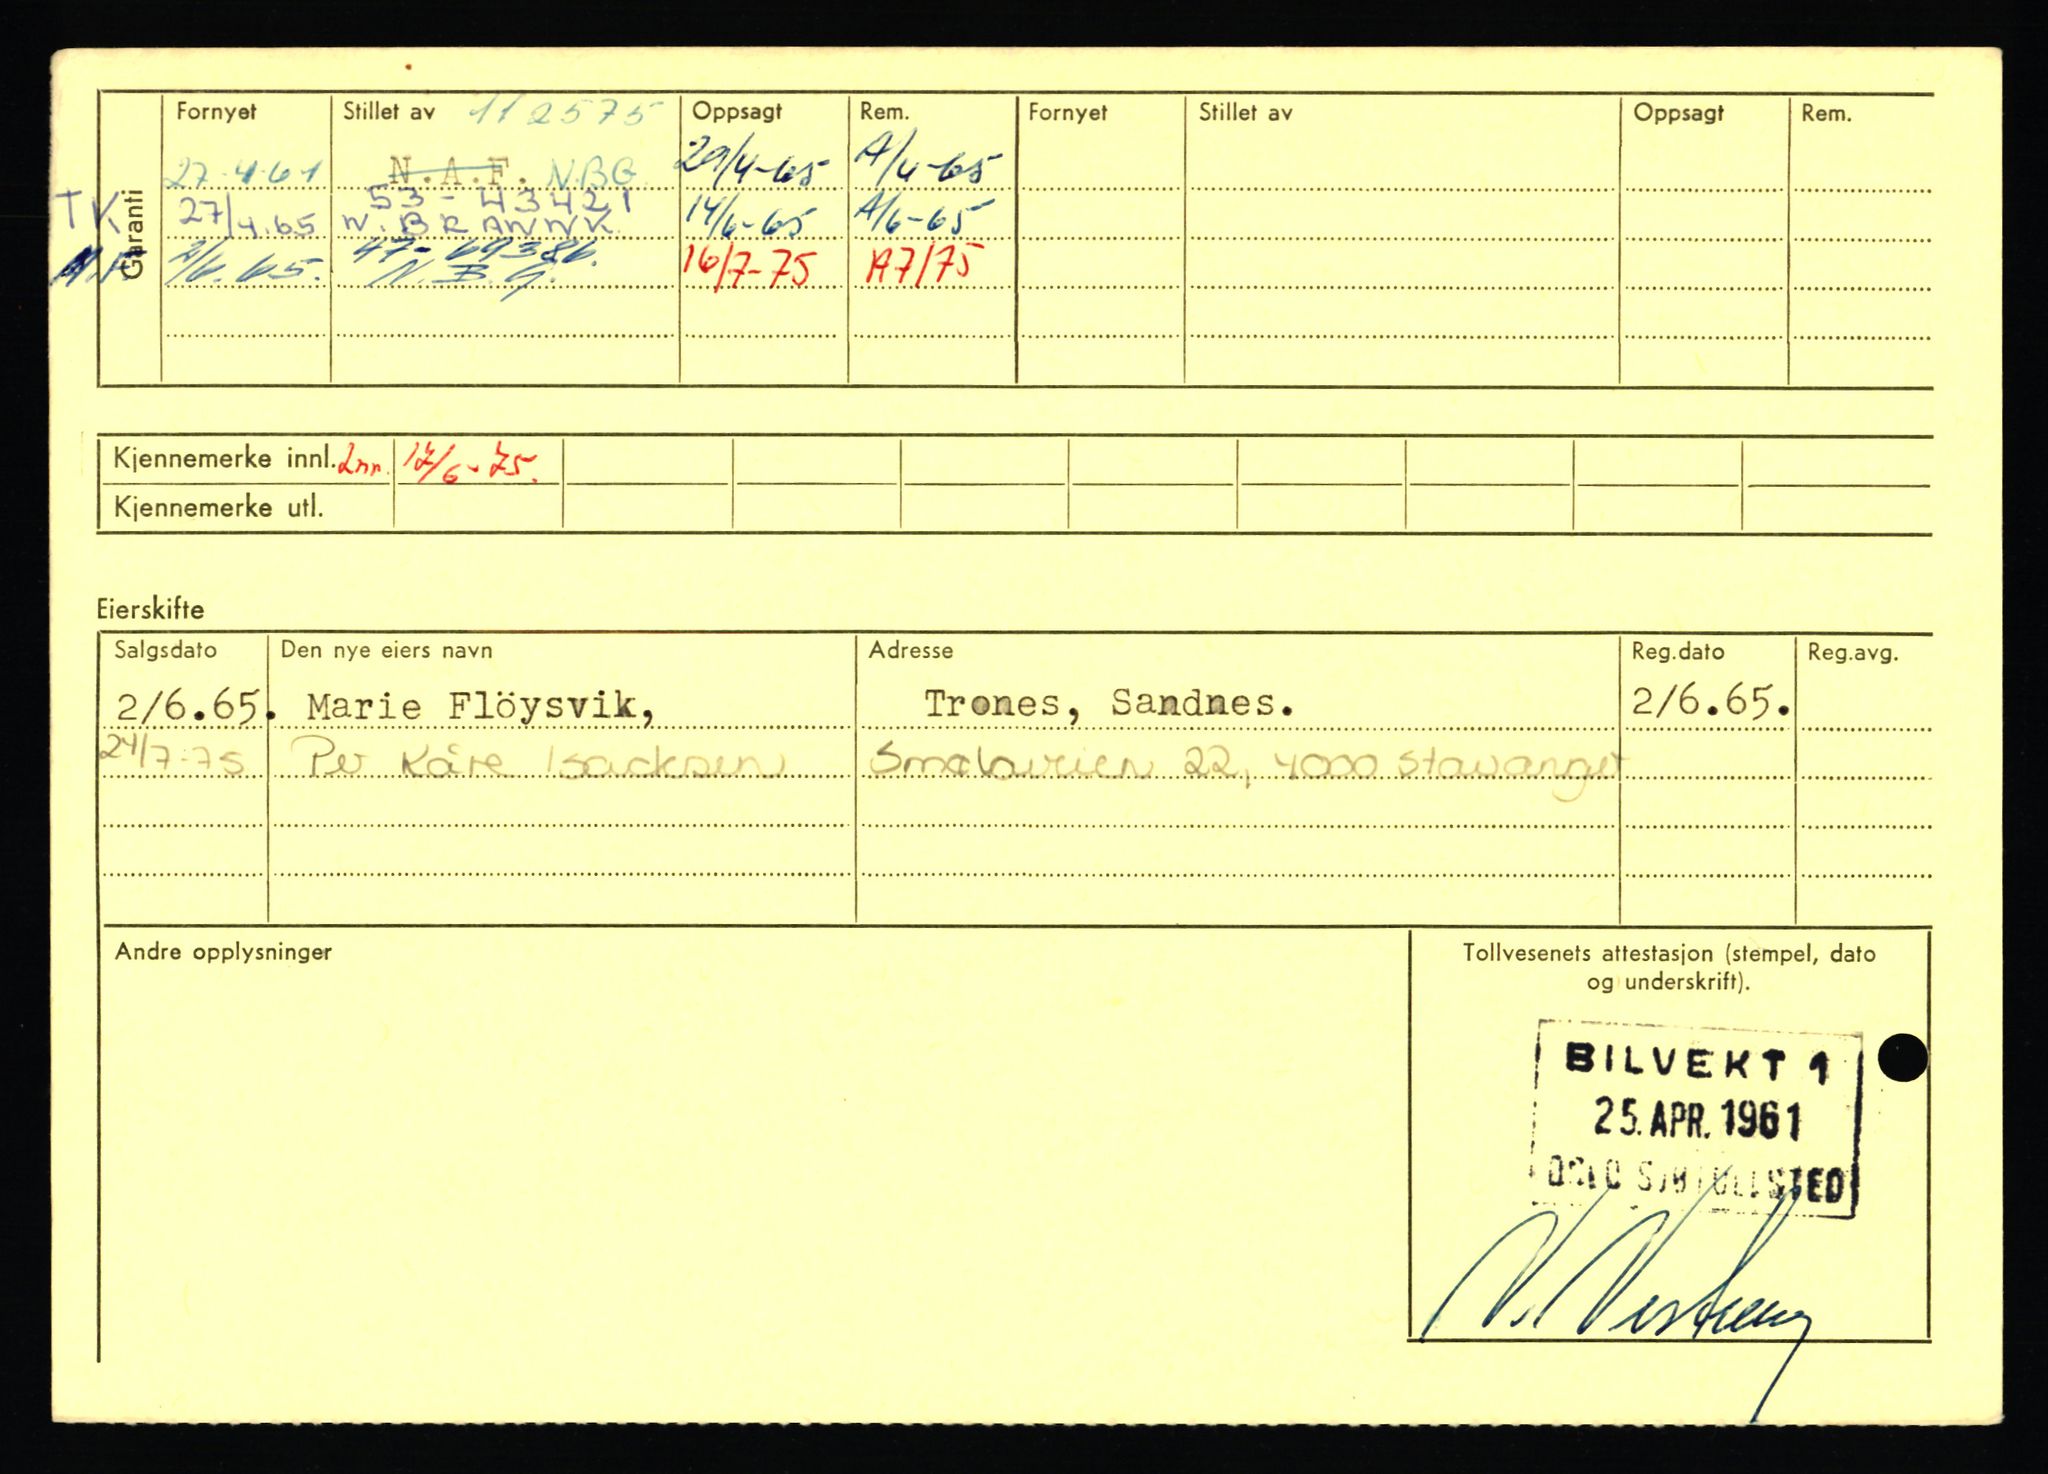 Garanti
Fornyet Stillet av 112575 Oppsagt Rem. Fornyet Stillet av Oppsagt Rem.
27-4-61 N.A.F. N.BG 29/4-65 A/4-65
TK 27/4.65 53-43421 14/6-65 A/6-65
2/6.65. 47-69386. N.B.G. 16/7-75 A7/75
Kjennemerke innl. 2nr. 17/6-75.
Kjennemerke utl.
Eierskifte
Salgsdato Den nye eiers navn Adresse Reg.dato Reg.avg.
2/6.65. Marie Flöysvik, Trones, Sandnes. 2/6.65.
24/7-75 Per Kåre Isacksen 22, 4000 Stavanger
Andre opplysninger
Tollvesenets attestasjon (stempel, dato
og underskrift).
BILVEKT 1
25. APR. 1961
OSLO SJØTOLLSTED